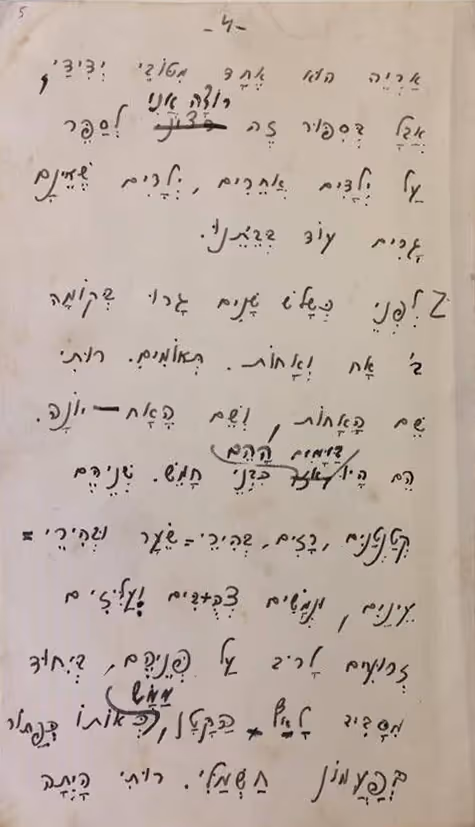 5
-4-
אַרְיֵה הוּא אֶחָד מִטּוֹבֵי יְדִידַי,
רוֹצָה אֲנִי
אֲבָל בְּסִפּוּר זֶה לְסַפֵּר
עַל יְלָדִים אֲחֵרִים, יְלָדִים שֶׁאֵינָם
גָּרִים עוֹד בְּבֵיתֵנוּ.
לִפְנֵי כְּשָׁלֹשׁ שָׁנִים גָּרוּ בְּקוֹמָה
ב' אָח וְאָחוֹת. תְּאוֹמִים. רוּתִי
שֵׁם הָאָחוֹת, וְשֵׁם הָאָח — יוֹנָה.
בַּיָּמִים הָהֵם
הֵם הָיוּ אָז כִּבְנֵי חָמֵשׁ. שְׁנֵיהֶם
קְטַנְטַנִּים, רָזִים, בְּהִירֵי=שֵׂעָר וּבְהִירֵי=
עֵינַיִם, וּנְמָשִׁים צְהֻבִּים וְעַלִּיזִים
זְרוּעִים לָרִיב עַל פְּנֵיהֶם, בְּיִחוּד
מַמָּשׁ
מִסָּבִיב לָאַף הַקָּטָן, כְּאוֹתוֹ כַּפְתּוֹר
בְּפַעֲמוֹן חַשְׁמַלִּי. רוּתִי הָיְתָה